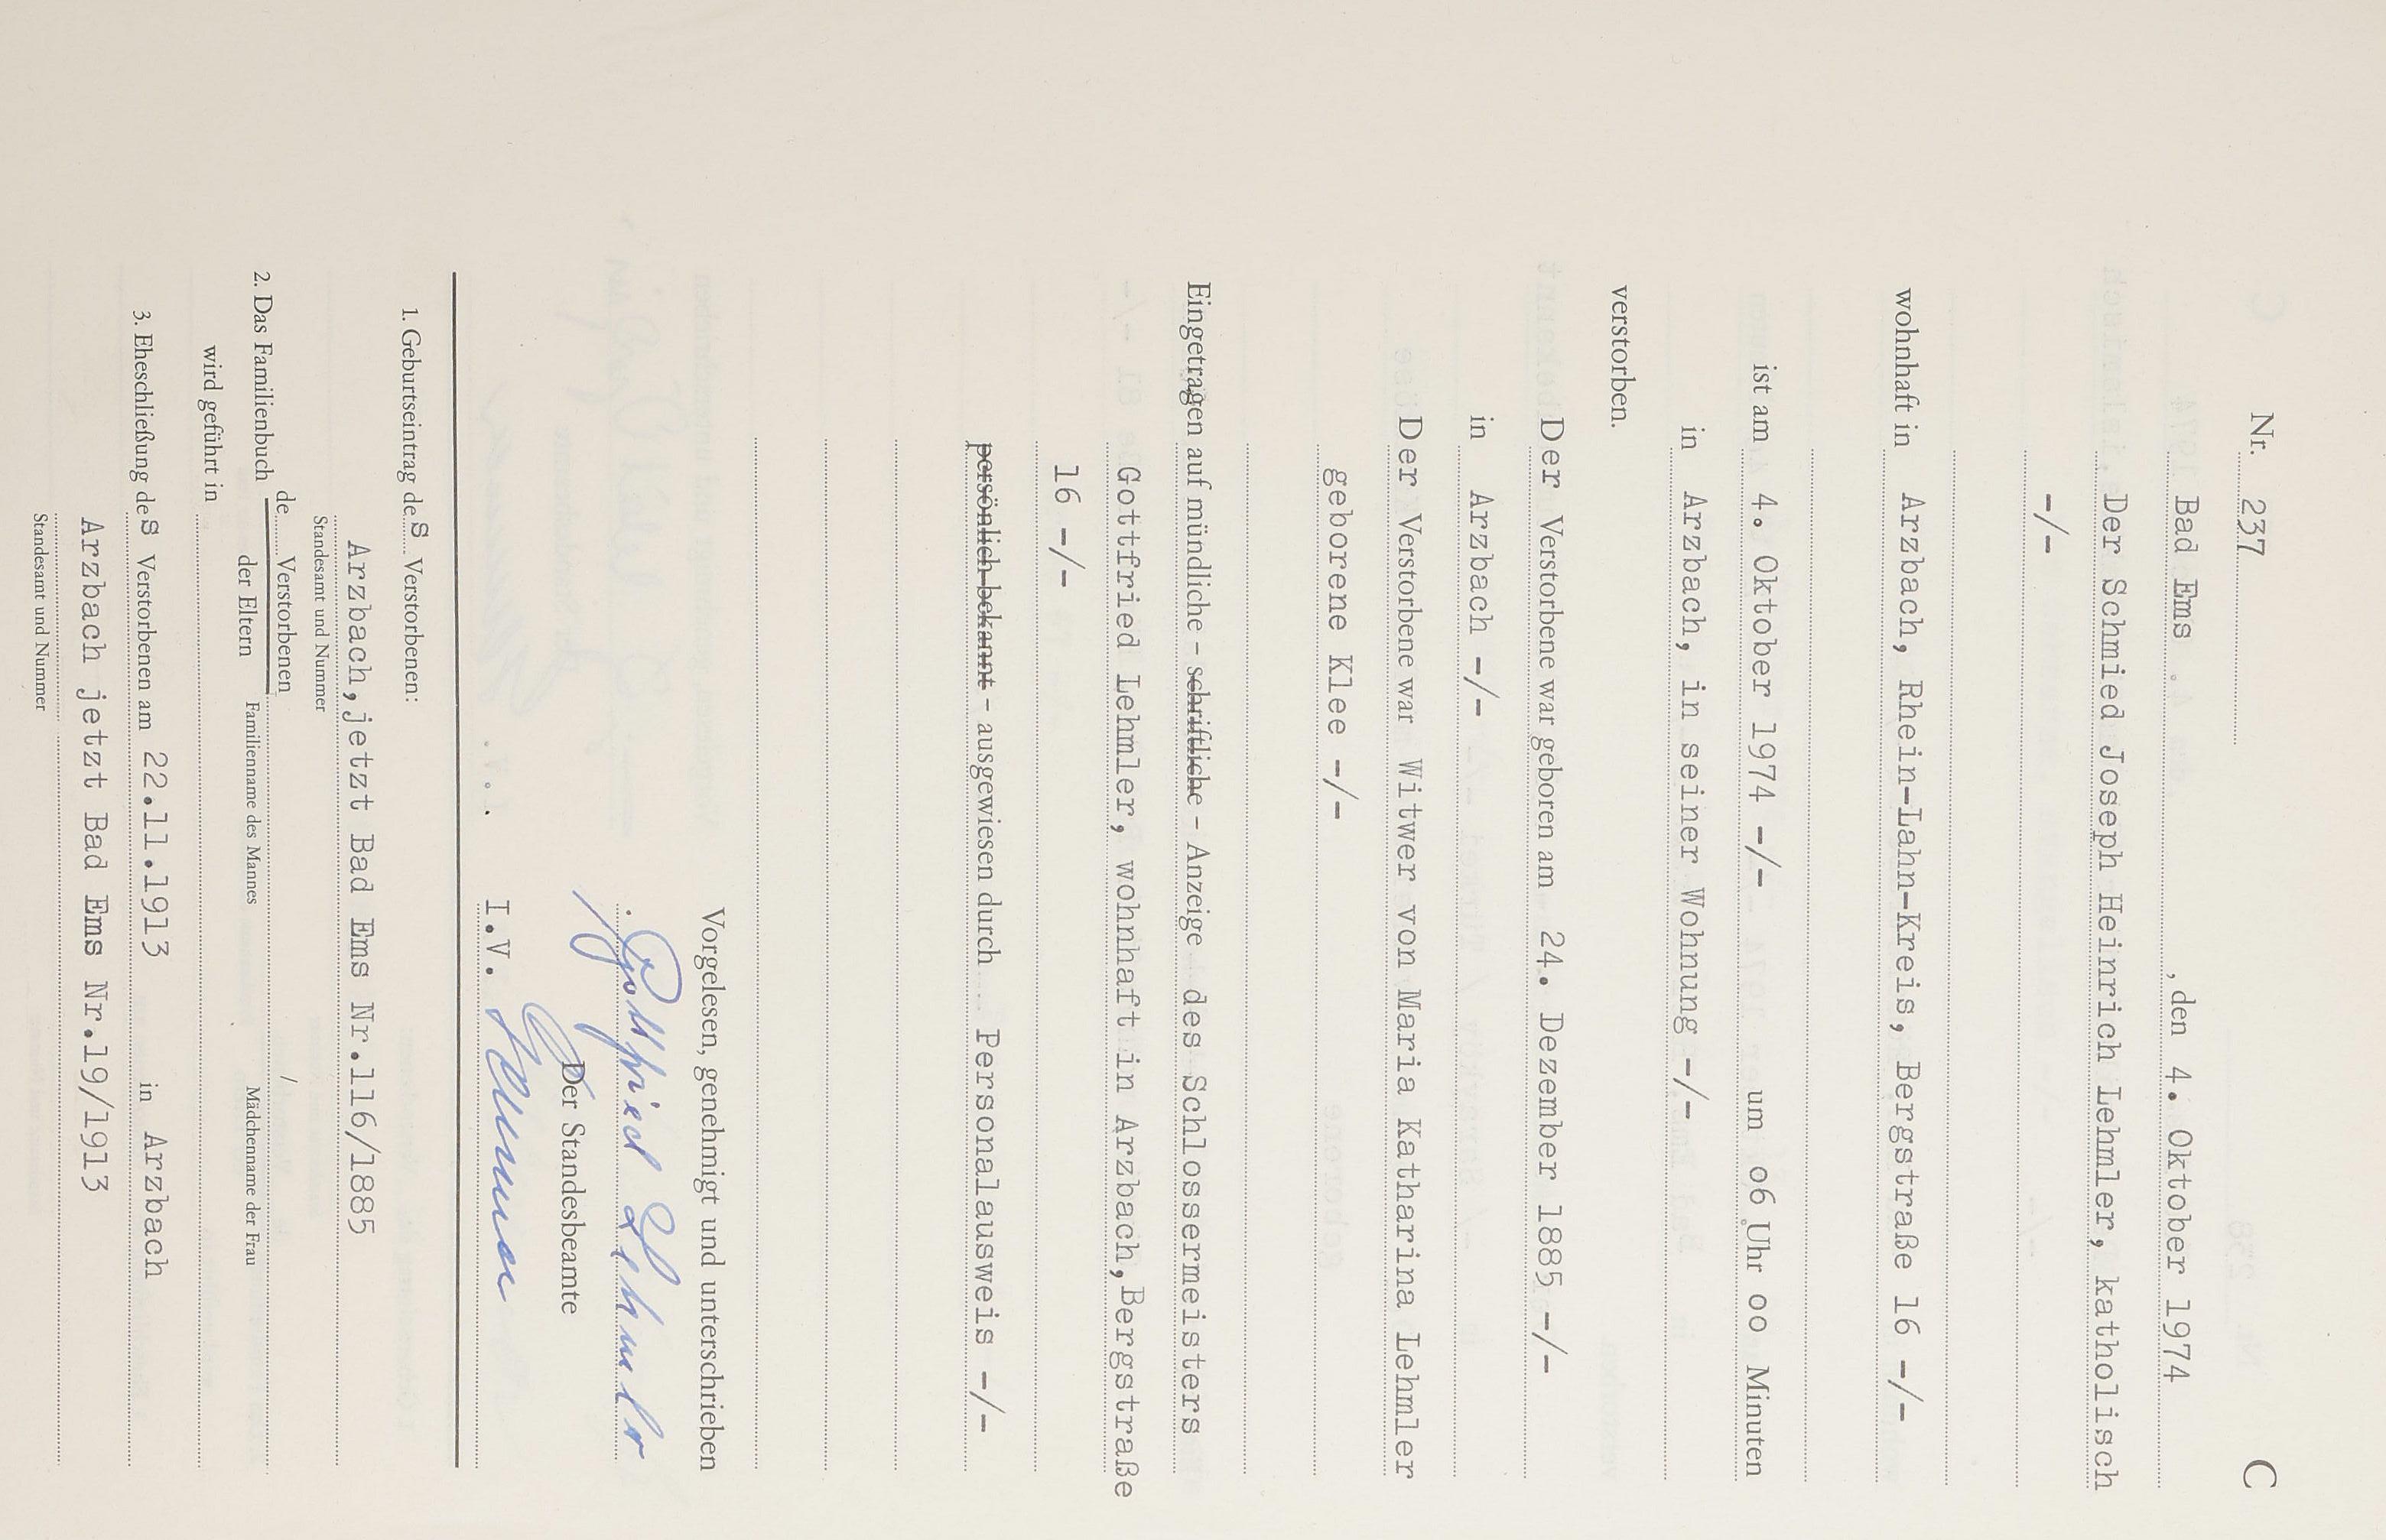 C
Nr. 237
Bad Ems, den 4. Oktober 1974
Der Schmied Joseph Heinrich Lehmler, katholisch
-/-
wohnhaft in Arzbach, Rhein-Lahn-Kreis, Bergstraße 16 -/-
ist am 4. Oktober 1974 -/- um o6 Uhr oo Minuten
in Arzbach, in seiner Wohnung -/-
verstorben.
Der Verstorbene war geboren am 24. Dezember 1885 -/-
in Arzbach -/-
Der Verstorbene war Witwer von Maria Katharina Lehmler
geborene Klee -/-
Eingetragen auf mündliche – schriftliche – Anzeige des Schlossermeisters
Gottfried Lehmler, wohnhaft in Arzbach,Bergstraße
16 -/-
persönlich bekannt – ausgewiesen durch Personalausweis -/-
Vorgelesen, genehmigt und unterschrieben
Gottfried Lehmler
Der Standesbeamte
I.V.
1. Geburtseintrag des Verstorbenen:
Arzbach,jetzt Bad Ems Nr.116/1885
Standesamt und Nummer
de Verstorbenen /
2. Das Familienbuch
der Eltern Familienname des Mannes Mädchenname der Frau
wird geführt in
3. Eheschließung des Verstorbenen am 22.11.1913 in Arzbach
Arzbach jetzt Bad Ems Nr.19/1913
Standesamt und Nummer